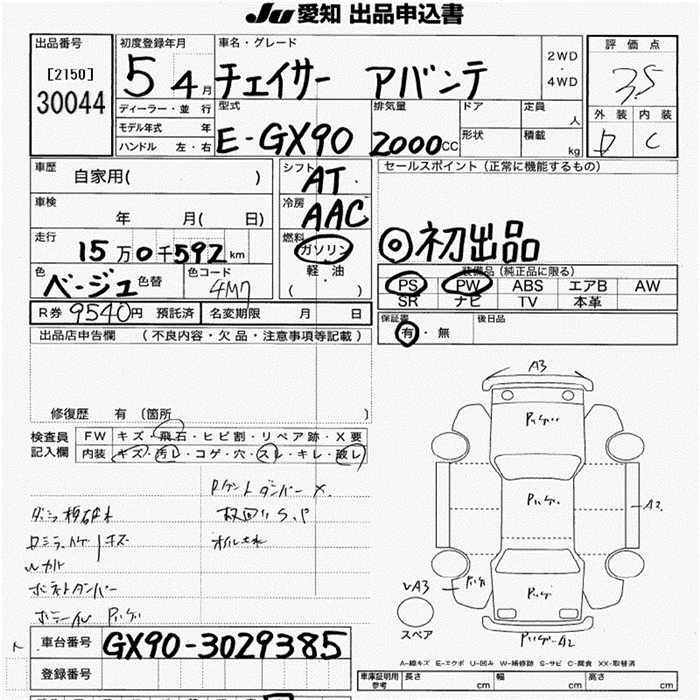 Ju 愛知 出品申込書
出品番号
[2150]
30044
初度登録年月
5 4月
車名・グレード
チェイサー アバンテ
2WD
・
4WD
評価点
3.5
外装 内装
D C
ディーラー・並行
モデル年式 年
ハンドル 左・右
型式
E-GX90
排気量
2000CC
ドア
形状
定員
人
積載
kg
車歴
自家用( )
車検
年 月( 日)
走行
15万0千592km
色
ベージュ 色替
色コード
4M7
シフト
AT
冷房
AAC
燃料
ガソリン
軽油
( )
セールスポイント(正常に機能するもの)
◎初出品
装備品(純正品に限る)
PS PW ABS エアB AW
SR ナビ TV 本革
R券 9540円 預託済 名変期限 月 日
保証書
有・無
後日品
出品店申告欄 (不良内容・欠品・注意事項等記載)
修復歴 有(箇所 )
検査員
記入欄
FW キズ・飛石・ヒビ割・リペア跡・X要
内装 キズ・汚レ・コゲ・穴・スレ・キレ・破レ
Rゲートダンパー X
ボンネットダンパー
オイルもれ
A3
A2
A3
A2
スペア
A-線キズ E-エクボ U-凹み W-補修跡 S-サビ C-腐食 XX-取替済
車台番号 GX90-3029385
登録番号
車庫証明用
参考
長さ cm 幅 cm 高さ cm